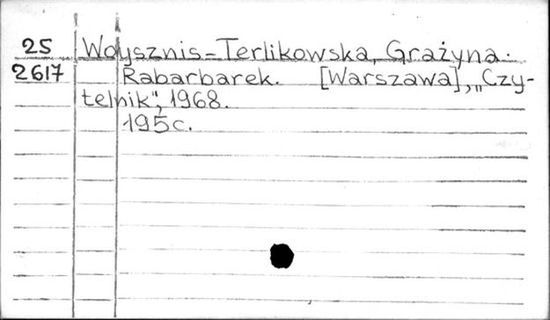 25 Woysznis-Terlikowska, Grażyna.
2617 Rabarbarek. [Warszawa], „Czy-
telnik", 1968.
195c.